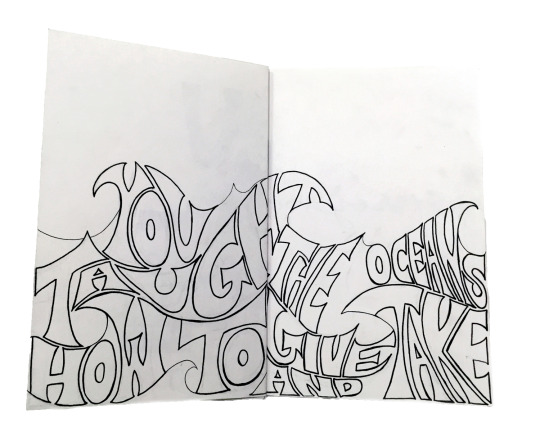 YOU
TAUGHT
THE OCEANS
HOW TO
GIVE
AND
TAKE